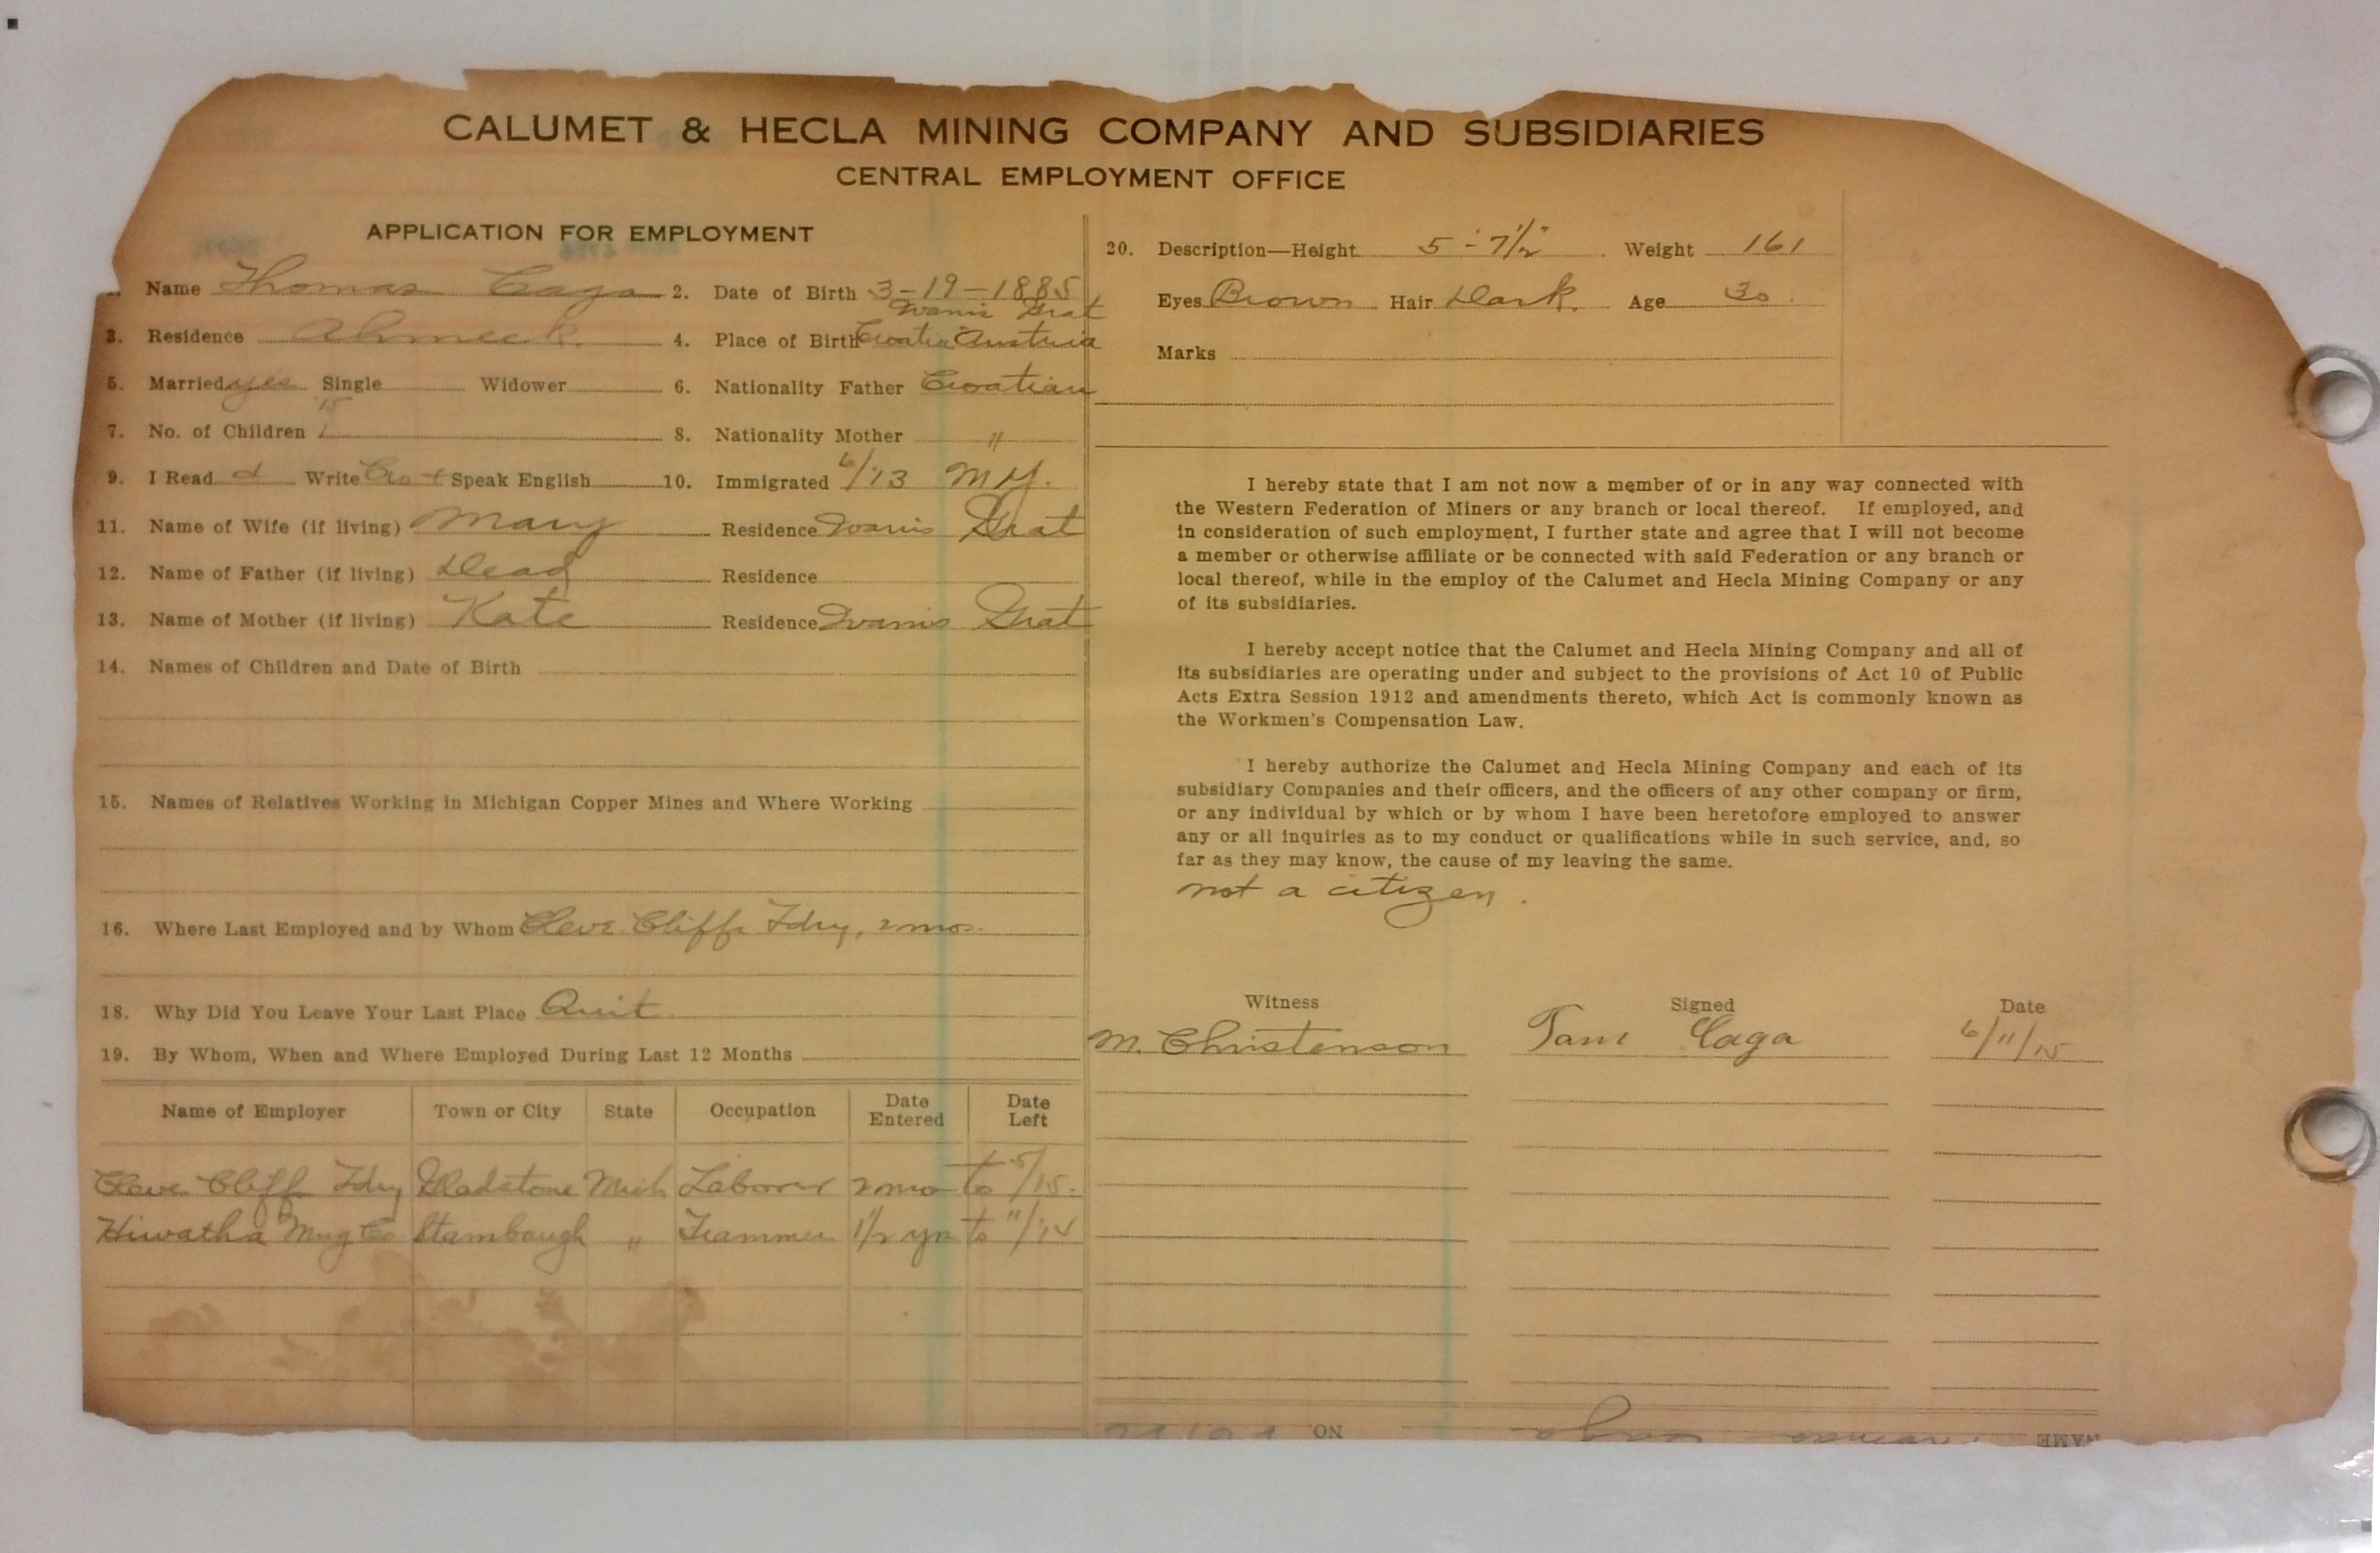 CALUMET & HECLA MINING COMPANY AND SUBSIDIARIES
CENTRAL EMPLOYMENT OFFICE
APPLICATION FOR EMPLOYMENT
Name Thomas Caga 2. Date of Birth 3-19-1885
Ivanic Grat
3. Residence Ahmeek. 4. Place of Birth Croatia Austria
5. Married yes Single Widower 6. Nationality Father Croatian
7. No. of Children 1 8. Nationality Mother "
9. I Read & Write Cro + Speak English 10. Immigrated 6/'13 N.Y.
11. Name of Wife (if living) Mary Residence Ivanis Grat
12. Name of Father (if living) Dead Residence
13. Name of Mother (if living) Kate Residence Ivanis Grat
14. Names of Children and Date of Birth
15. Names of Relatives Working in Michigan Copper Mines and Where Working
16. Where Last Employed and by Whom Cleve. Cliffs Fdry, 2 mos.
18. Why Did You Leave Your Last Place Quit
19. By Whom, When and Where Employed During Last 12 Months
Name of Employer Town or City State Occupation Date Entered Date Left
Cleve Cliffs Fdry Gladstone Mich Laborer 2 mo to 5/15.
Hiwatha Mng Co. Stambaugh " Trammer 1 1/2 yr to 11/14
20. Description—Height 5'-7 1/2" Weight 161
Eyes Brown Hair Dark. Age 30.
Marks
I hereby state that I am not now a member of or in any way connected with
the Western Federation of Miners or any branch or local thereof. If employed, and
in consideration of such employment, I further state and agree that I will not become
a member or otherwise affiliate or be connected with said Federation or any branch or
local thereof, while in the employ of the Calumet and Hecla Mining Company or any
of its subsidiaries.
I hereby accept notice that the Calumet and Hecla Mining Company and all of
its subsidiaries are operating under and subject to the provisions of Act 10 of Public
Acts Extra Session 1912 and amendments thereto, which Act is commonly known as
the Workmen's Compensation Law.
I hereby authorize the Calumet and Hecla Mining Company and each of its
subsidiary Companies and their officers, and the officers of any other company or firm,
or any individual by which or by whom I have been heretofore employed to answer
any or all inquiries as to my conduct or qualifications while in such service, and, so
far as they may know, the cause of my leaving the same.
not a citizen.
Witness Signed Date
M. Christenson Tom Caga 6/11/15
NO. NAME